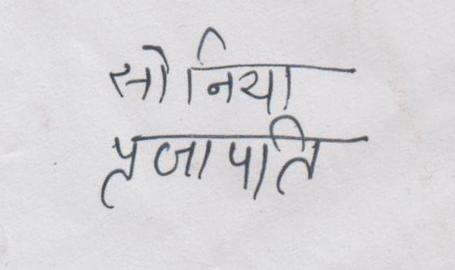 सोनिया
प्रजापति